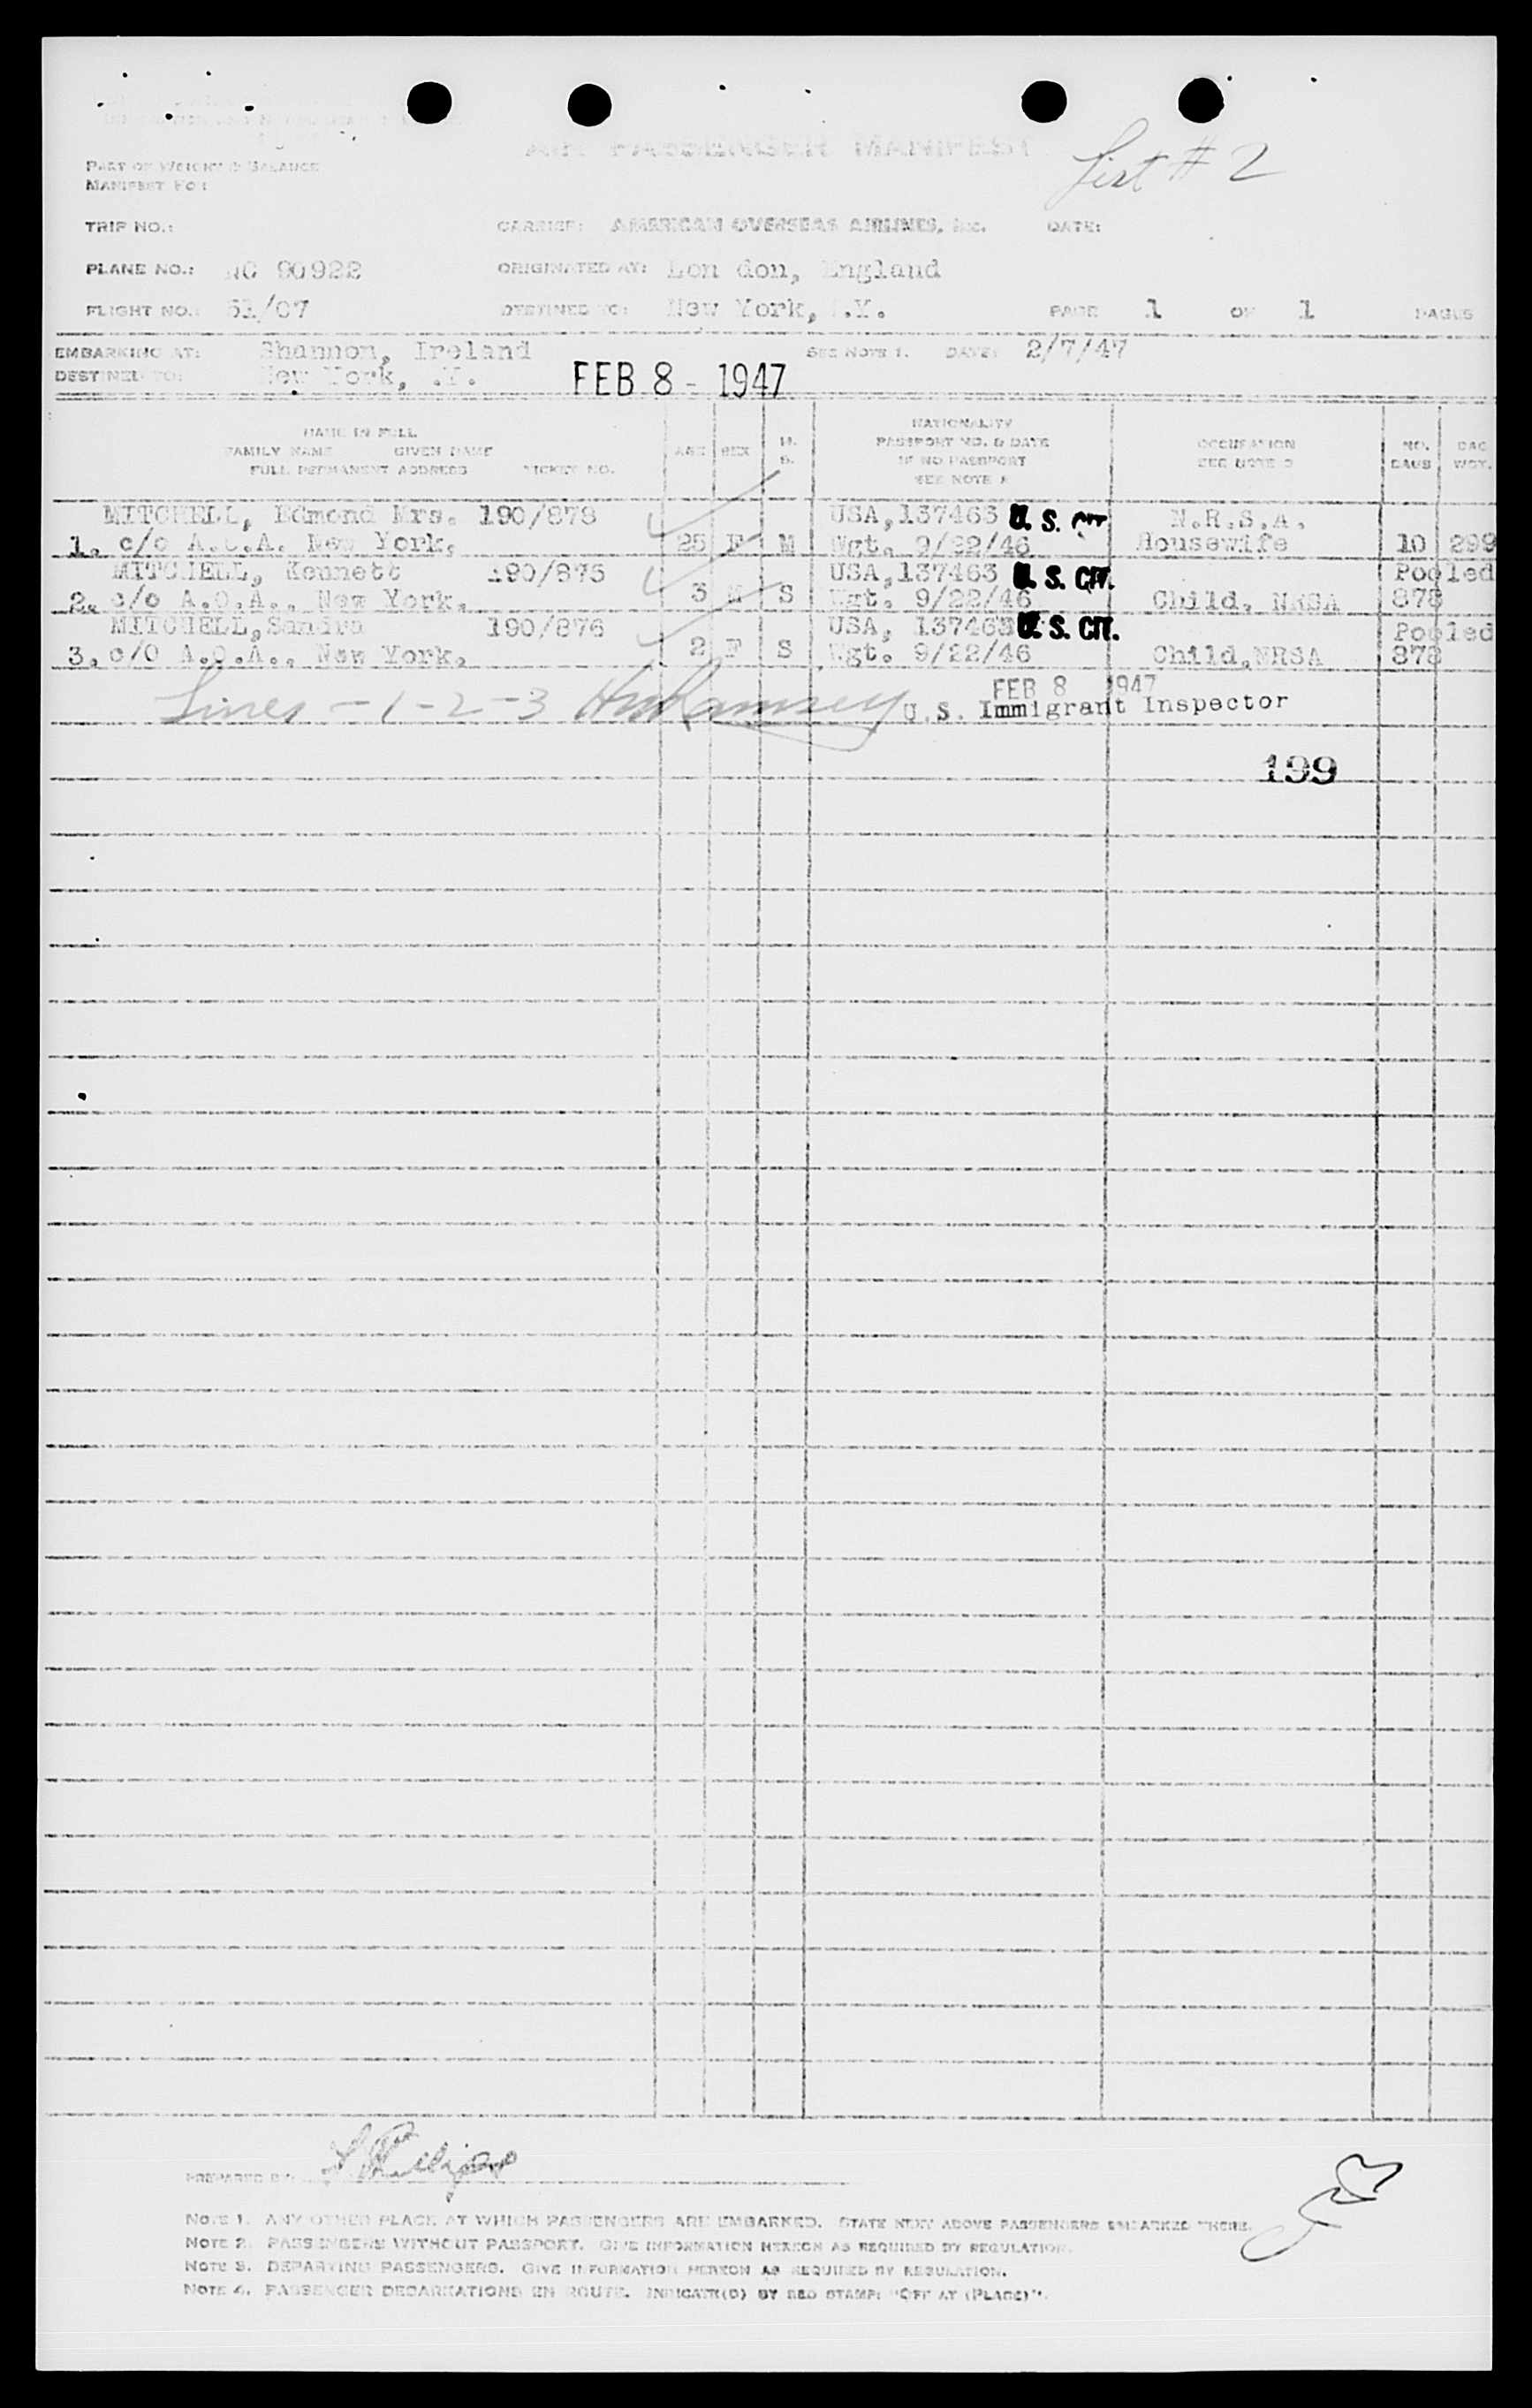 AIR PASSENGER MANIFEST
List # 2
PART OF WEIGHT & BALANCE
MANIFEST FOR:
TRIP NO.: CARRIER: AMERICAN OVERSEAS AIRLINES, INC. DATE:
PLANE NO.: NC 90922 ORIGINATED AT: Lon don, England
FLIGHT NO.: 51/07 DESTINED TO: New York, .Y. PAGE 1 OF 1 PAGES
EMBARKING AT: Shannon, Ireland SEE NOTE 1. DATE: 2/7/47
DESTINED TO: New York, .Y. FEB 8 - 1947
NAME IN FULL
FAMILY NAME GIVEN NAME
FULL PERMANENT ADDRESS TICKET NO.
AGE SEX M. S.
NATIONALITY
PASSPORT NO. & DATE
IF NO PASSPORT
SEE NOTE
OCCUPATION
SEE NOTE
NO. BAGS BAG WGT.
MITCHELL, Edmond Mrs. 190/878 USA, 137463 U. S. CIT. N.R.S.A.
1. c/o A.O.A. New York. 25 F M Wgt. 9/22/46 Housewife 10 299
MITCHELL, Kennett 190/875 USA, 137463 U. S. CIT. Pooled
2. c/o A.O.A., New York. 3 M S Wgt. 9/22/46 Child, NRSA 878
MITCHELL, Sandra 190/876 USA, 137463 U. S. CIT. Pooled
3. c/o A.O.A., New York. 2 F S Wgt. 9/22/46 Child, NRSA 878
Lines - 1 - 2 - 3 FEB 8 1947
U.S. Immigrant Inspector
199
PREPARED BY:
NOTE 1. ANY OTHER PLACE AT WHICH PASSENGERS ARE EMBARKED. STATE NEXT ABOVE PASSENGERS EMBARKED THERE.
NOTE 2. PASSENGERS WITHOUT PASSPORT. GIVE INFORMATION HEREON AS REQUIRED BY REGULATION.
NOTE 3. DEPARTING PASSENGERS. GIVE INFORMATION HEREON AS REQUIRED BY REGULATION.
NOTE 4. PASSENGER DEBARKATIONS EN ROUTE. INDICATE(D) BY RED STAMP: "OFF AT (PLACE)".